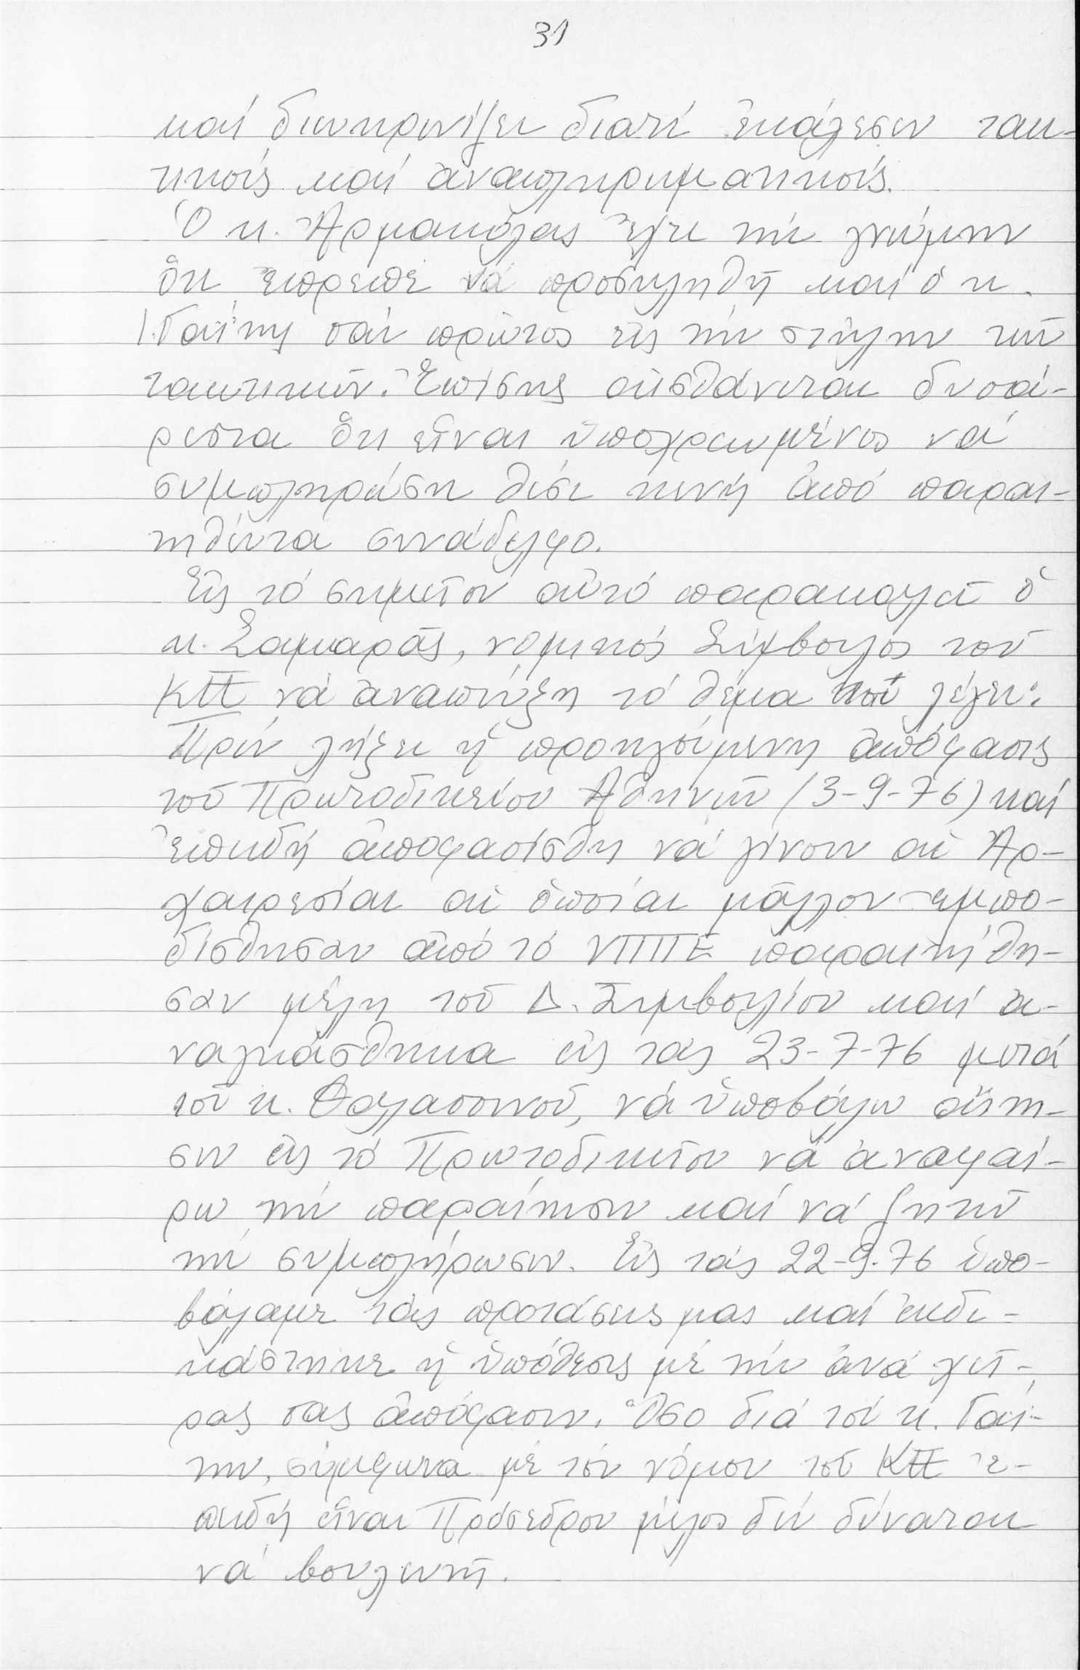 31
καί διευκρινίζει διατί ἐκάλεσεν τακ-
τικούς καί ἀναπληρωματικούς.
Ὁ κ. Ἀρμακόλας ἔχει τήν γνώμην
ὅτι ἔπρεπε νά προσκληθῇ καί ὁ κ.
Γαΐτης σάν πρῶτος εἰς τήν στήλην τῶν
τακτικῶν. Ἐπίσης αἰσθάνεται δυσά-
ρεστα ὅτι εἶναι ὑποχρεωμένος νά
συμπληρώσῃ θέσι κενή ἀπό παραι-
τηθέντα συνάδελφο.
Εἰς τό σημεῖον αὐτό παρακαλεῖ ὁ
κ. Σαμαρᾶς, νομικός Σύμβουλος τοῦ
ΚΠ νά ἀναπτύξη τό θέμα λέγει:
Πρίν λήξει ἡ προηγουμένη ἀπόφασις
τοῦ Πρωτοδικείου Ἀθηνῶν (3-9-76) καί
ἐπειδή ἀποφασίσθη νά γίνουν αἱ Ἀρ-
χαιρεσίαι αἱ ὁποῖαι μᾶλλον ἐμπο-
δίσθησαν ἀπό τό ΥΠΠΕ παραιτήθη-
σαν μέλη τοῦ Δ. Συμβουλίου καί ἀ-
ναγκάσθηκα εἰς τάς 23-7-76 μετά
τοῦ κ. Θαλασσινοῦ, νά ὑποβάλω αἴτη-
σιν εἰς τό Πρωτοδικεῖον νά ἀναφαί-
ρω τήν παραίτησιν καί νά ζητῶ
τή συμπλήρωσιν. Εἰς τάς 22-9-76 ὑπο-
βάλαμε τάς προτάσεις μας καί ἐκδι-
κάστηκε ἡ ὑπόθεσις μέ τήν ἀνά χεῖ-
ρας σας ἀπόφασιν. Ὅσο διά τόν κ. Γαΐ-
την, σύμφωνα μέ τόν νόμον τοῦ ΚΠ ἐ-
πειδή εἶναι Πρόσεδρον μέλος δέν δύναται
νά βουλευτῇ.